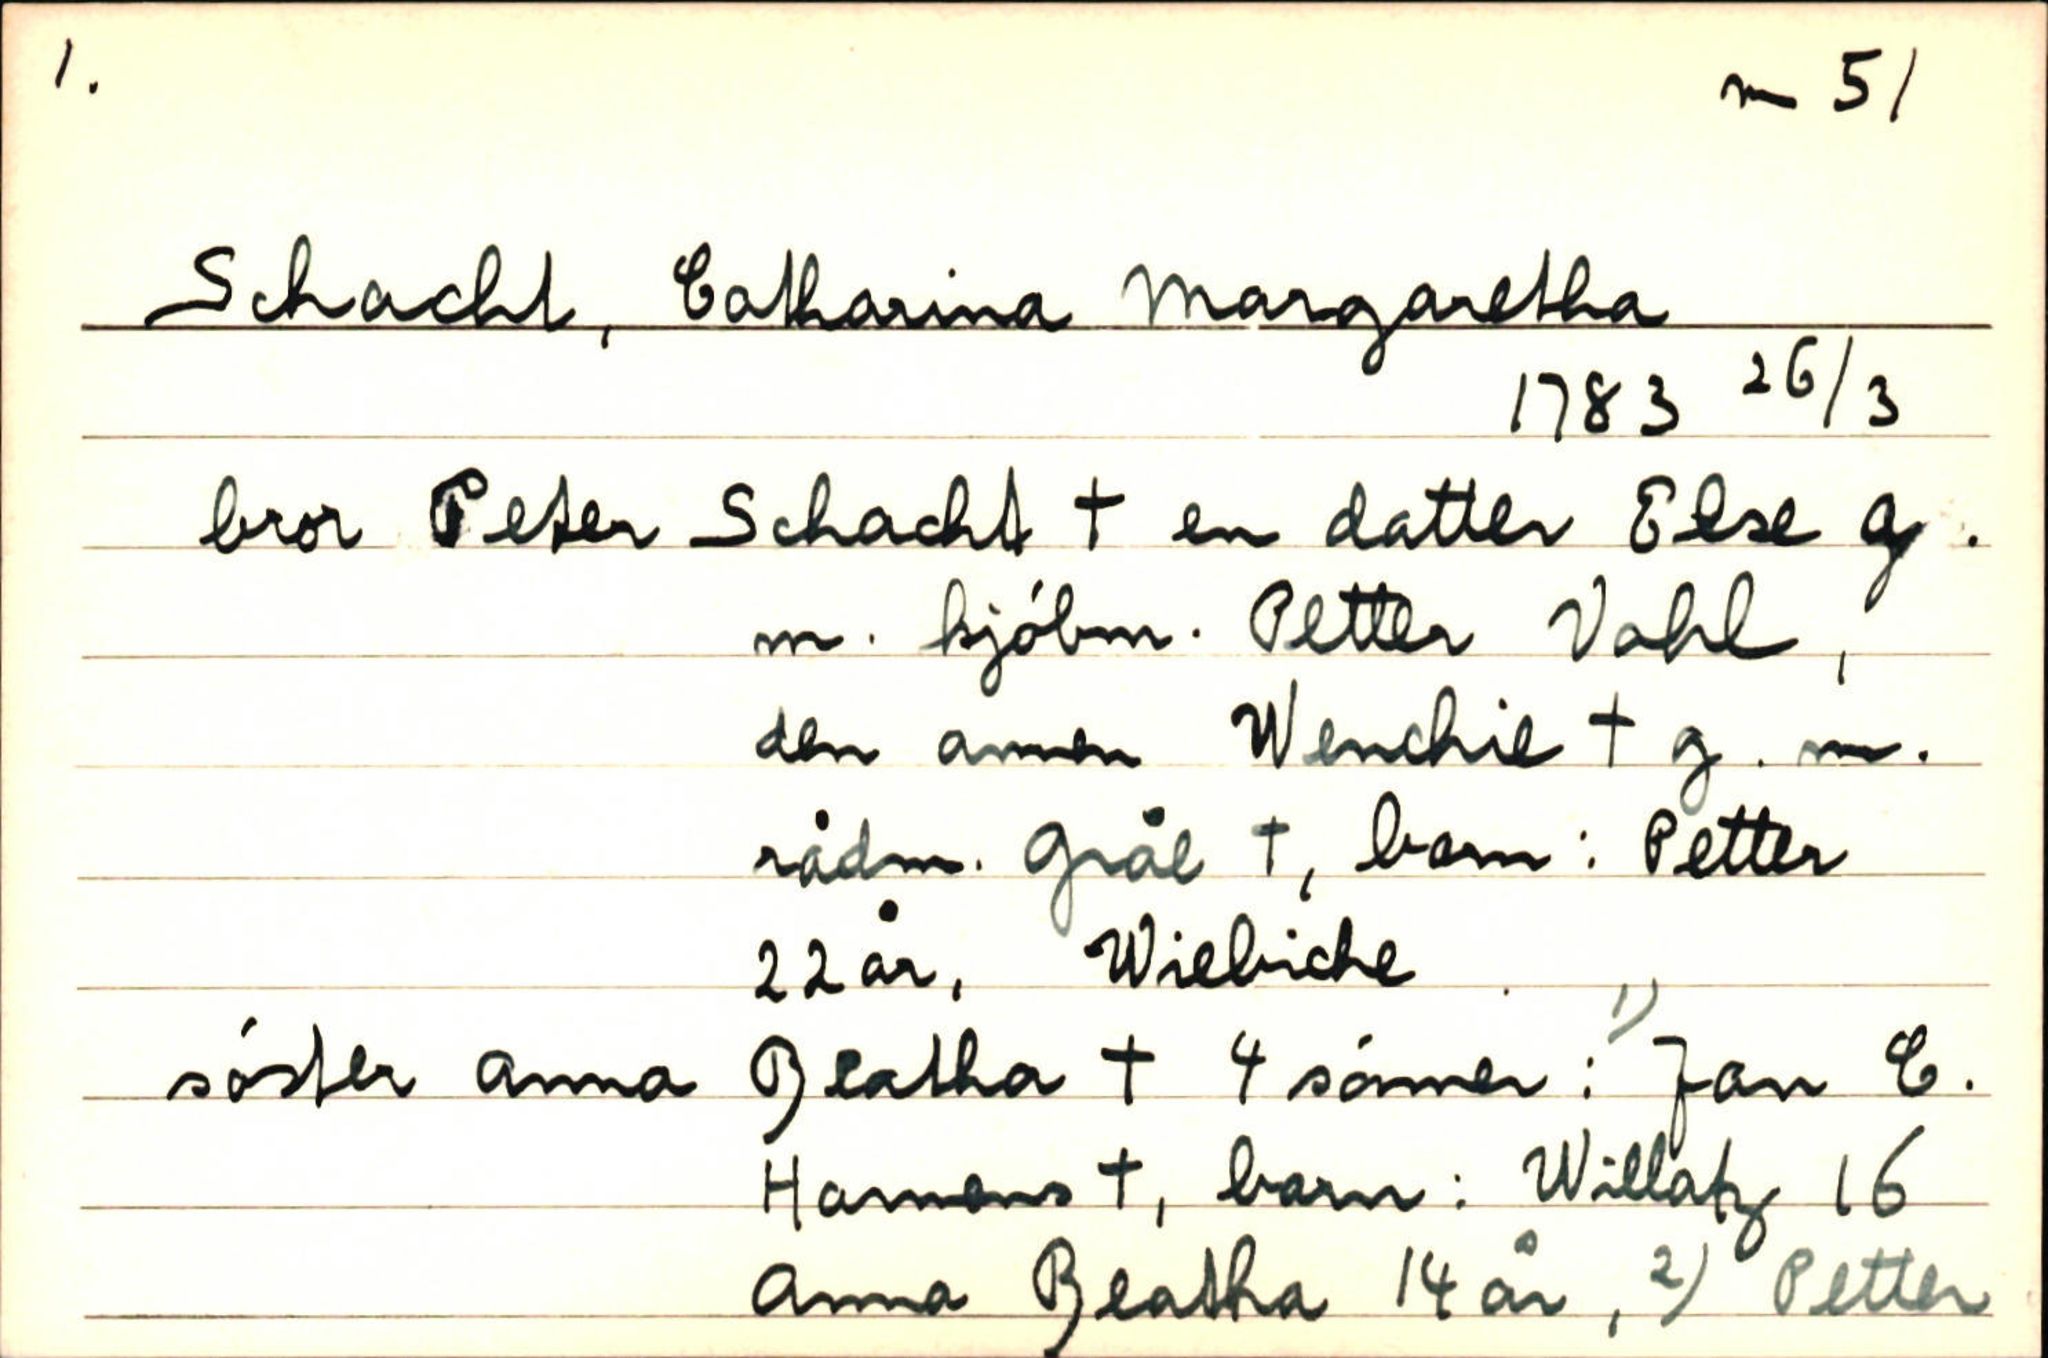 1. m 51
Schacht, Catharina Margaretha
1783 26/3
bror Peter Schacht † en datter Else g.
m. kjóbm. Petter Vahl,
den annen Wenchie † g. m.
rådm. Gråe †, barn: Petter
22 år, Wiebiche
sóster Anna Beatha † 4 sónner: 1) Jan C.
Hamens †, barn: Willatz 16
Anna Beatha 14 år, 2) Petter